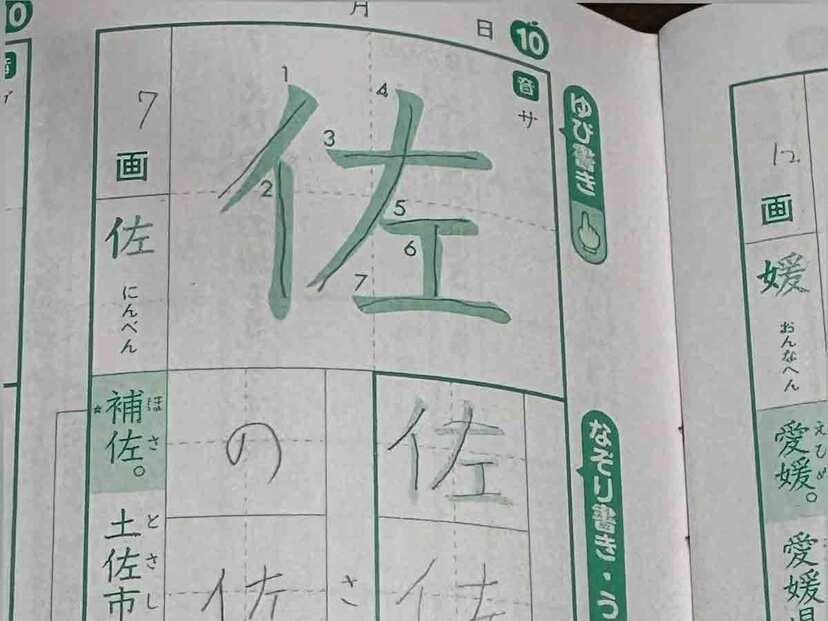 月
日
10
音
サ
ゆび書き
1
2
3
4
5
6
7
佐
7
画
佐
にんべん
補佐。
ほさ
土佐市
とさし
なぞり書き・う
佐
の
佐
さ
佐
12
画
媛
おんなへん
愛媛。
えひめ
愛媛県